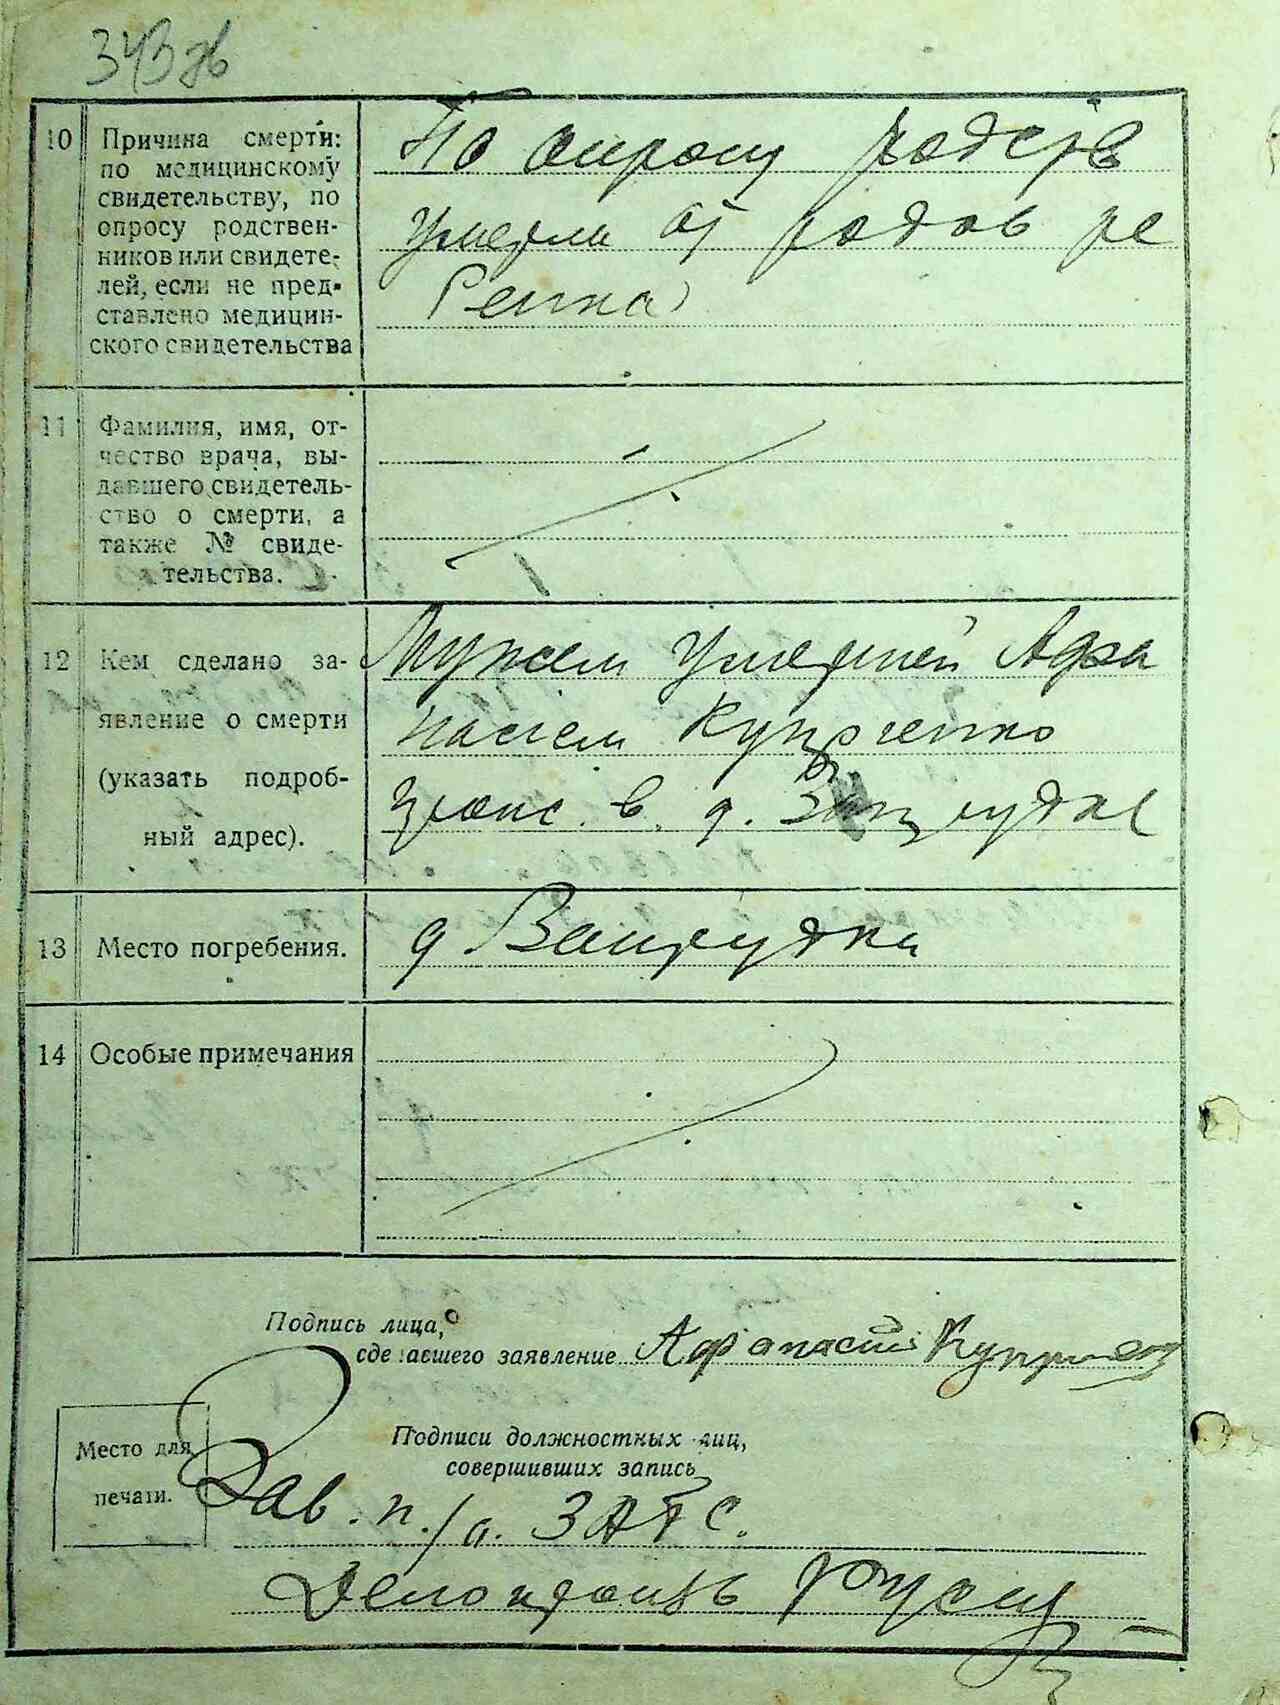 10 Причина смерти:
по медицинскому
свидетельству, по
опросу родствен-
ников или свидете-
лей, если не пред-
ставлено медицин-
ского свидетельства
По опросу родств
умерла от родов ре
бенка
11 Фамилия, имя, от-
чество врача, вы-
давшего свидетель-
ство о смерти, а
также № свиде-
тельства.
12 Кем сделано за-
явление о смерти
(указать подроб-
ный адрес).
Мужем умершей Афа
насием Куприенко
в д.
13 Место погребения.
д
14 Особые примечания
Подпись лица,
сделавшего заявление Афанасий
Место для
печати.
Подписи должностных лиц,
совершивших запись
Зав. п/о. ЗАГС.
Делопроизв